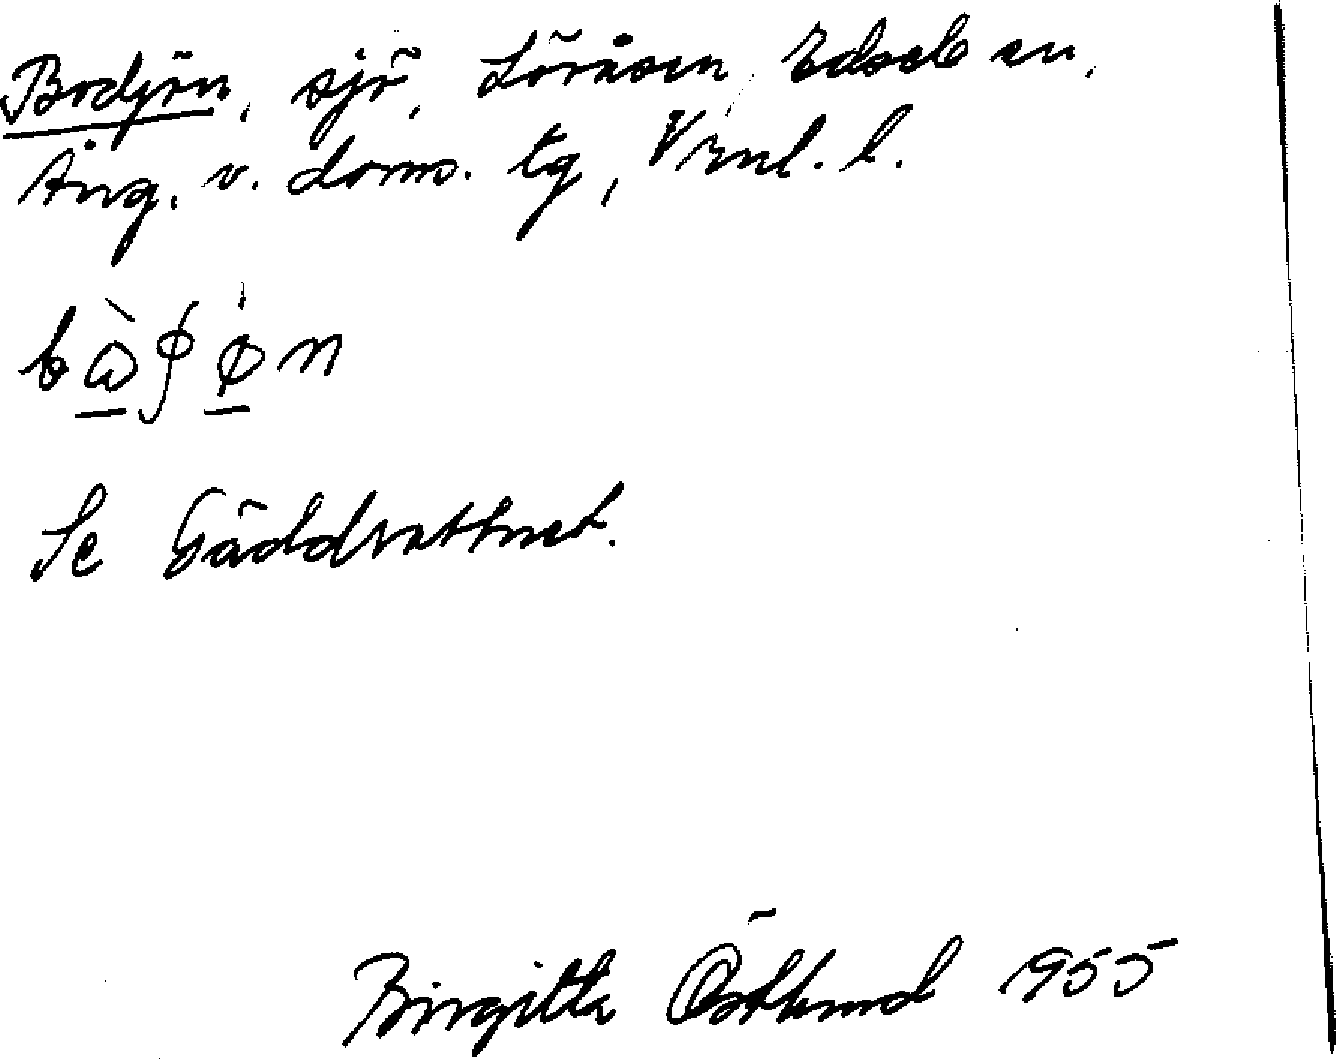 Bodjön, sjö, Löråsen, Edsele sn,
Äng. v. doms. tg, Vrnl. l.
Se Gäddvattnet.
Birgitta Östlund 1955